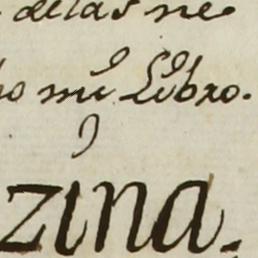 delas ne
ho mũ Libro.
zina.